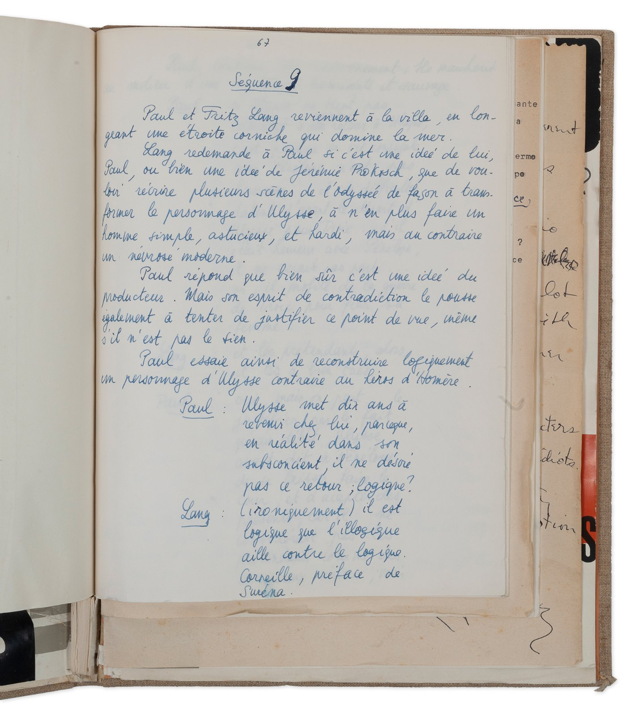 67
Séquence 9
Paul et Fritz Lang reviennent à la villa, en lon-
geant une étroite corniche qui domine la mer.
Lang redemande à Paul si c'est une idée de lui,
Paul, ou bien une idée de Jérémie Prokosch, que de vou-
loir récrire plusieurs scènes de l'odyssée de façon à trans-
former le personnage d'Ulysse, à n'en plus faire un
homme simple, astucieux, et hardi, mais au contraire
un névrosé moderne.
Paul répond que bien sûr c'est une idée du
producteur. Mais son esprit de contradiction le pousse
également à tenter de justifier ce point de vue, même
s'il n'est pas le sien.
Paul essaie ainsi de reconstruire logiquement
un personnage d'Ulysse contraire au héros d'Homère.
Paul : Ulysse met dix ans à
revenir chez lui, parceque,
en réalité dans son
subsconcient, il ne désire
pas ce retour ; logique?
Lang : (ironiquement) il est
logique que l'illogique
aille contre le logique.
Corneille, préface de
Suréna.
ante
a
erme
ce,
?
ce
lot
ith
cters
diots.
tion
S